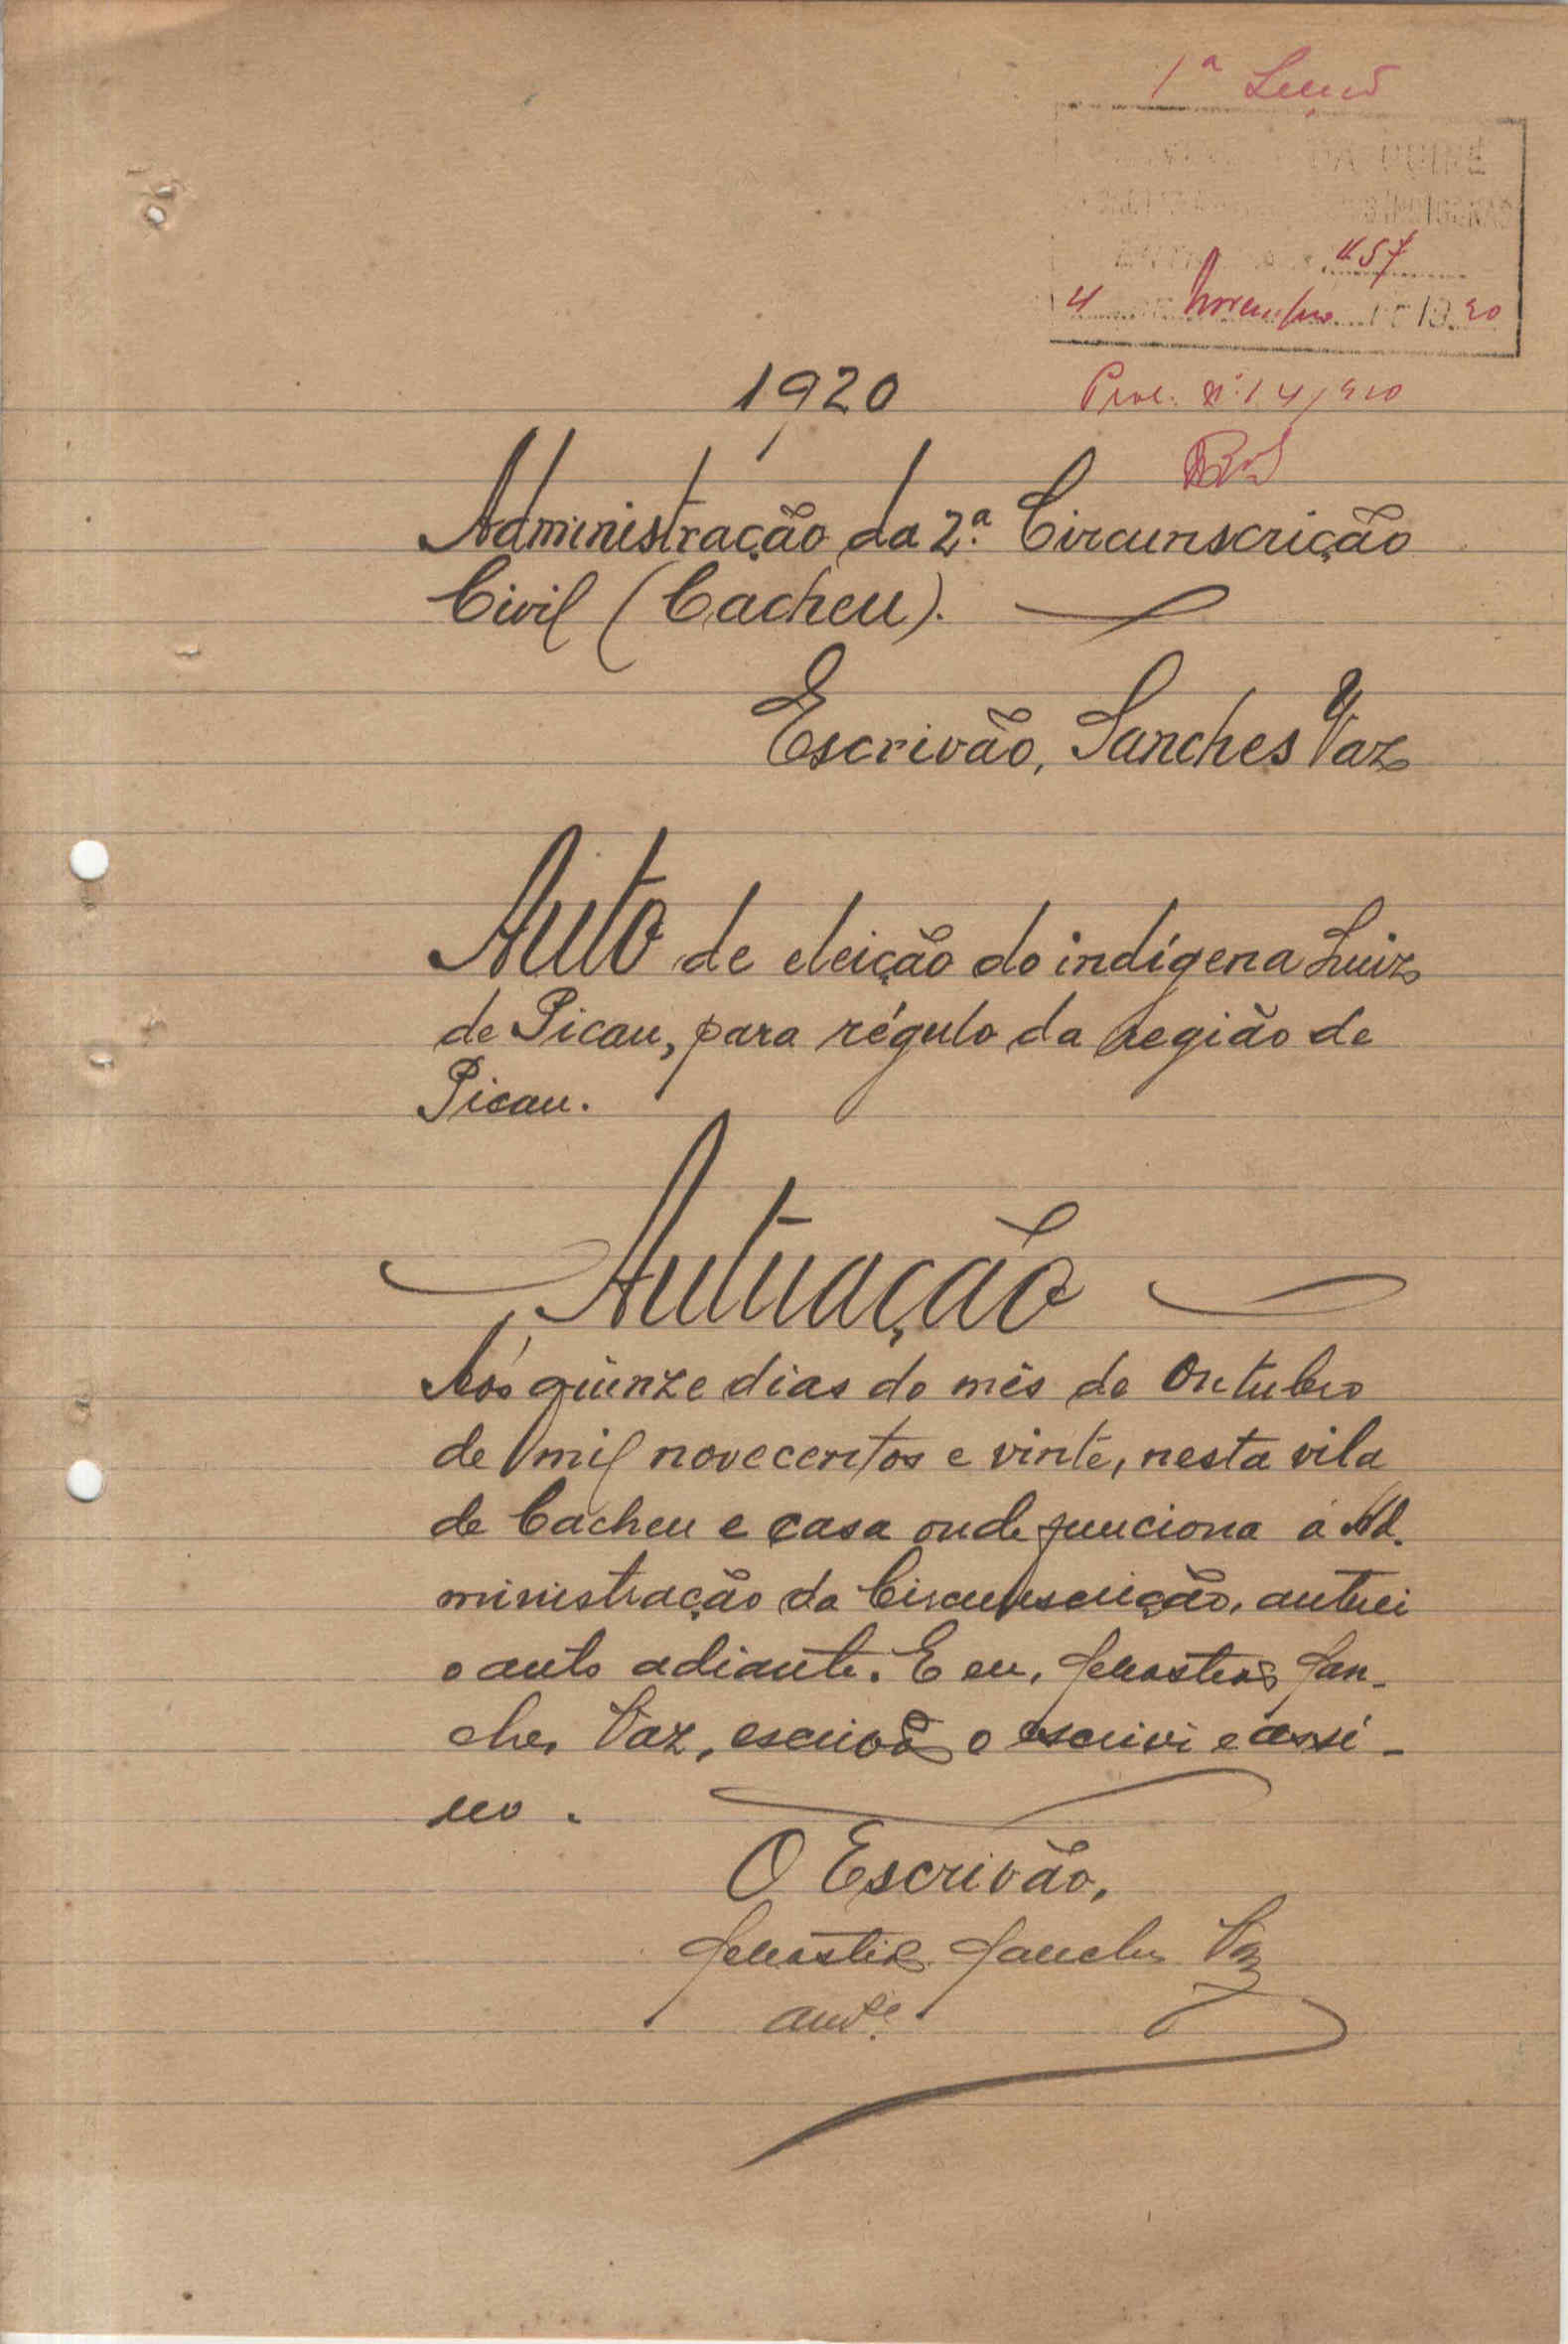 1ª
DA GUINÉ
457
4 Novembro DE 1920
1920
Proc. Nº 14/920
Administração da 2.ª Circunscrição
Civil (Cacheu).
Escrivão, Sanches Vaz
Auto de eleição do indígena Luiz
de Picau, para régulo da região de
Picau.
Autuação
Aos quinze dias do mês de Outubro
de mil novecentos e vinte, nesta vila
de Cacheu e casa onde funciona a Ad-
ministração da Circunscrição, autuei
o auto adiante. E eu, Sebastião San-
ches Vaz, escrivão o escrivi e assi-
no.
O Escrivão,
Sebastião Sanches Vaz